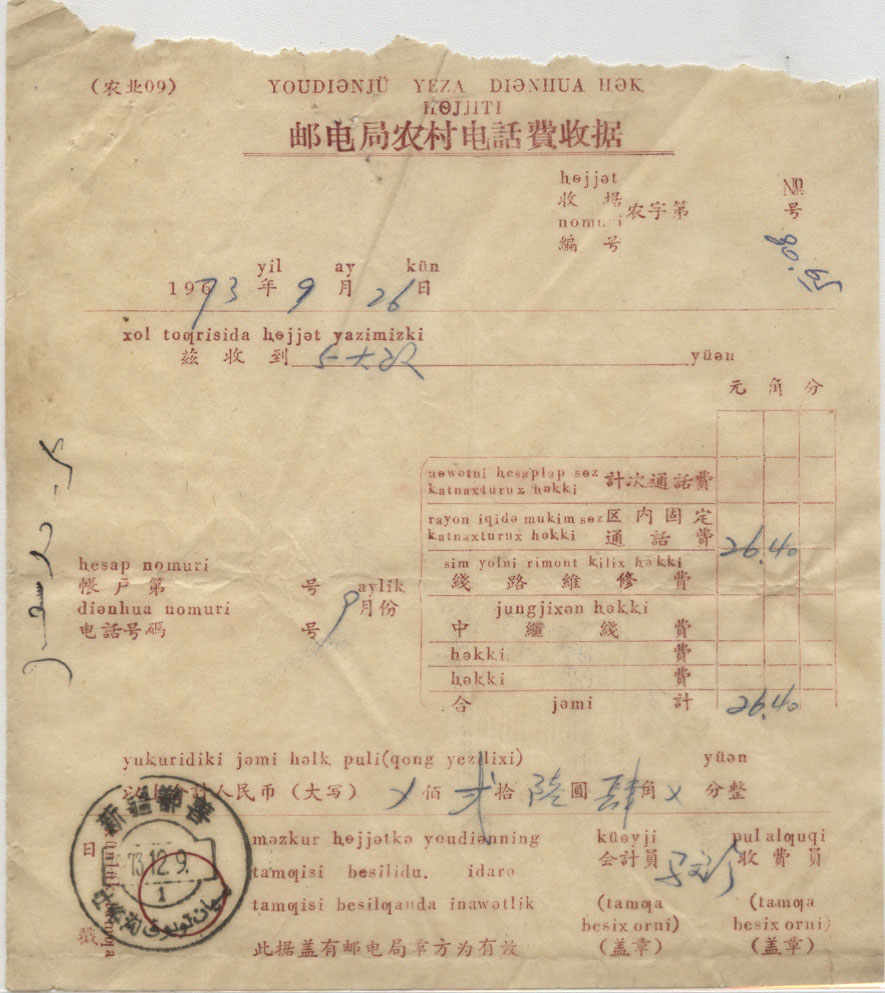 (农北09)
YOUDIƏNJÜ YEZA DIƏNHUA HƏK
HƟJJITI
邮电局农村电話費收据
hɵjjət
收据
nomuri
編号
农字第
№
号
yil ay kün
196 73 年 9 月 26 日
xol toƣrisida hɵjjət yazimizki
兹收到
yüən
元 角 分
nɵwətni hesaplap sɵz
katnaxturux həkki
計次通話費
rayon iqidə mukim sɵz
katnaxturux həkki
区内固定
通話費
26.40
sim yolni rimont kilix həkki
綫路維修費
jungjixən həkki
中繼綫費
həkki 費
həkki 費
合 jəmi 計
26.40
hesap nomuri
帳户第 号
diənhua nomuri
电話号碼 号
aylik
9 月份
yukuridiki jəmi həlk puli(qong yezilixi) yüən
以上合計人民币(大写) 佰 弍 拾 陸 圓 肆 角 分整
məzkur hɵjjətkə youdiənning
tamƣisi besilidu. idarə
tamƣisi besilƣanda inawətlik
此据盖有邮电局章方为有效
küəyji
会計員
(tamƣa
besix orni)
(盖章)
pul alƣuqi
收費員
(tamƣa
besix orni)
(盖章)
日
戳
新疆鄯善
73.12.9.
1